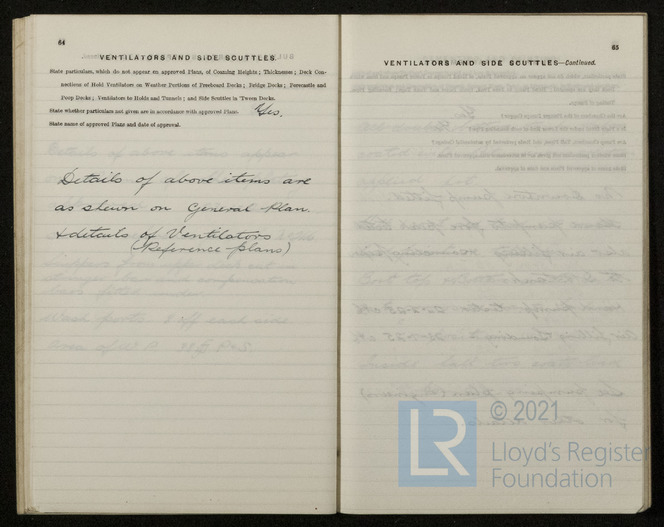 64
VENTILATORS AND SIDE SCUTTLES.
State particulars, which do not appear on approved Plans, of Coaming Heights; Thicknesses; Deck Con-
nections of Hold Ventilators on Weather Portions of Freeboard Decks; Bridge Decks; Forecastle and
Poop Decks; Ventilators to Holds and Tunnels; and Side Scuttles in 'Tween Decks.
State whether particulars not given are in accordance with approved Plans. Yes.
State name of approved Plans and date of approval.
Details of above items are
as shewn on General Plan.
& details of Ventilators
(Reference plans)
65
VENTILATORS AND SIDE SCUTTLES—Continued.
LR
© 2021
Lloyd's Register
Foundation